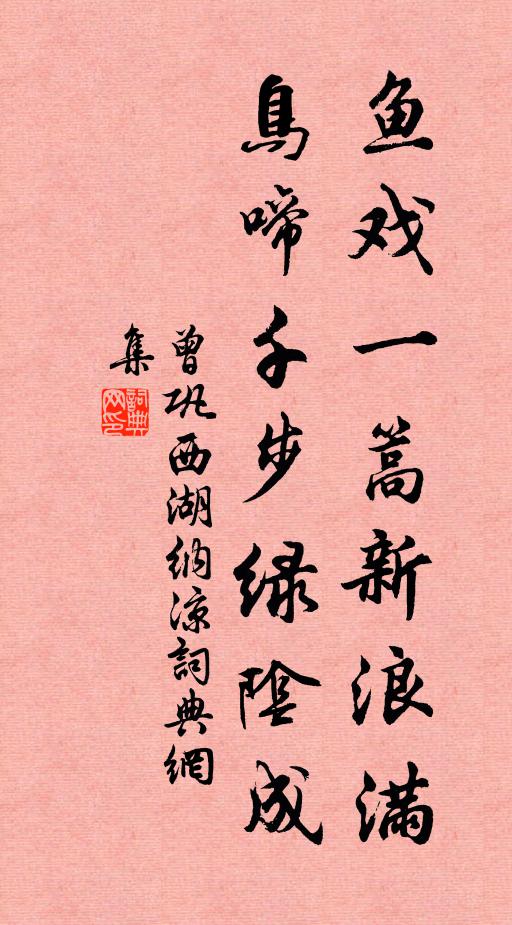 鱼戏一篙新浪满
鳥啼千步绿陰成
曾巩西湖纳凉詞典網
集
詞典
网印